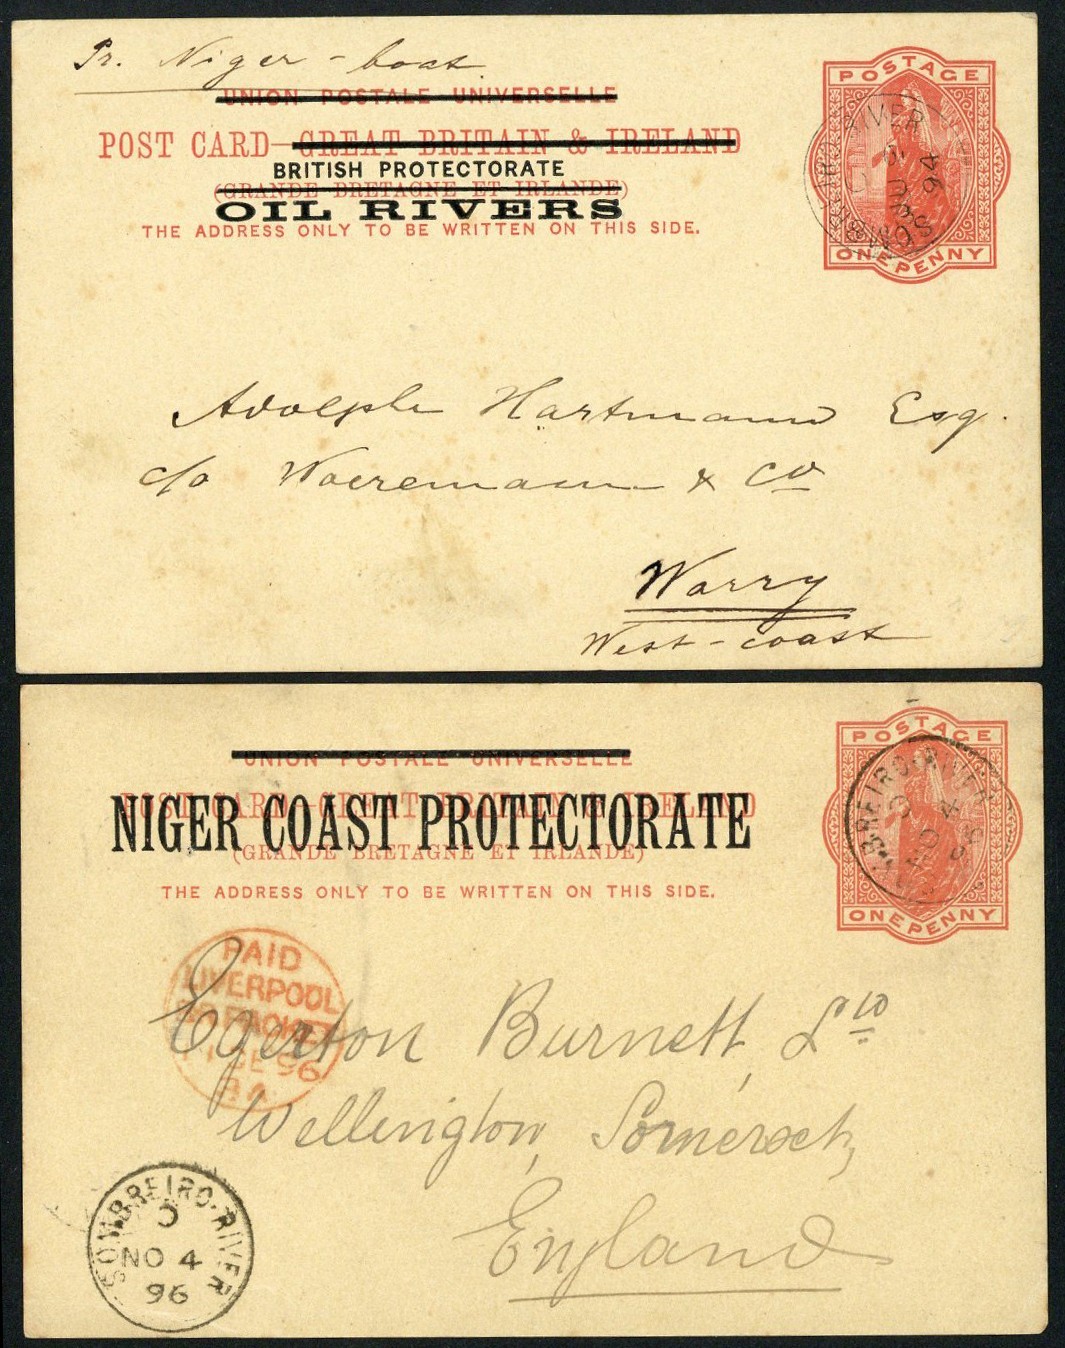 Pr. Niger-boat
UNION POSTALE UNIVERSELLE
POST CARD—GREAT BRITAIN & IRELAND
BRITISH PROTECTORATE
(GRANDE BRETAGNE ET IRLANDE)
OIL RIVERS
THE ADDRESS ONLY TO BE WRITTEN ON THIS SIDE.
POSTAGE
ONE PENNY
SOMBREIRO RIVER
94
Adolph Hartmann Esq.
c/o Woeremann & Co
Warry
West-coast
UNION POSTALE UNIVERSELLE
POST CARD—GREAT BRITAIN & IRELAND
NIGER COAST PROTECTORATE
(GRANDE BRETAGNE ET IRLANDE)
THE ADDRESS ONLY TO BE WRITTEN ON THIS SIDE.
POSTAGE
ONE PENNY
BREIRO-RIVER
C
NO 4
96
PAID
LIVERPOOL
BR PACKET
DE 96
Egerton Burnett, Ld
Wellington, Somerset,
England
SOMBREIRO-RIVER
C
NO 4
96